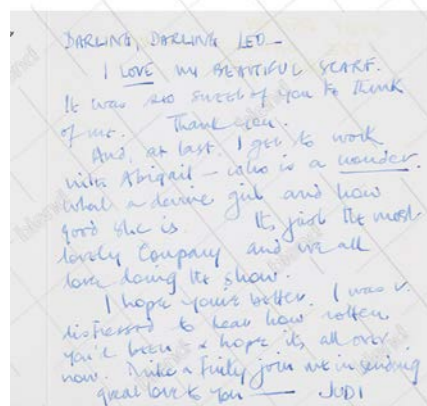 DARLING, DARLING LEO —
I LOVE my BEAUTIFUL SCARF.
It was so sweet of you to think
of me. Thank you.
And, at last, I get to work
with Abigail – who is a wonder.
What a divine girl and how
good she is. It's just the most
lovely Company and we all
love doing the show.
I hope you're better. I was v.
distressed to hear how rotten
you'd been & hope it's all over
now. Mike & Finty join me in sending
great love to you — JUDI